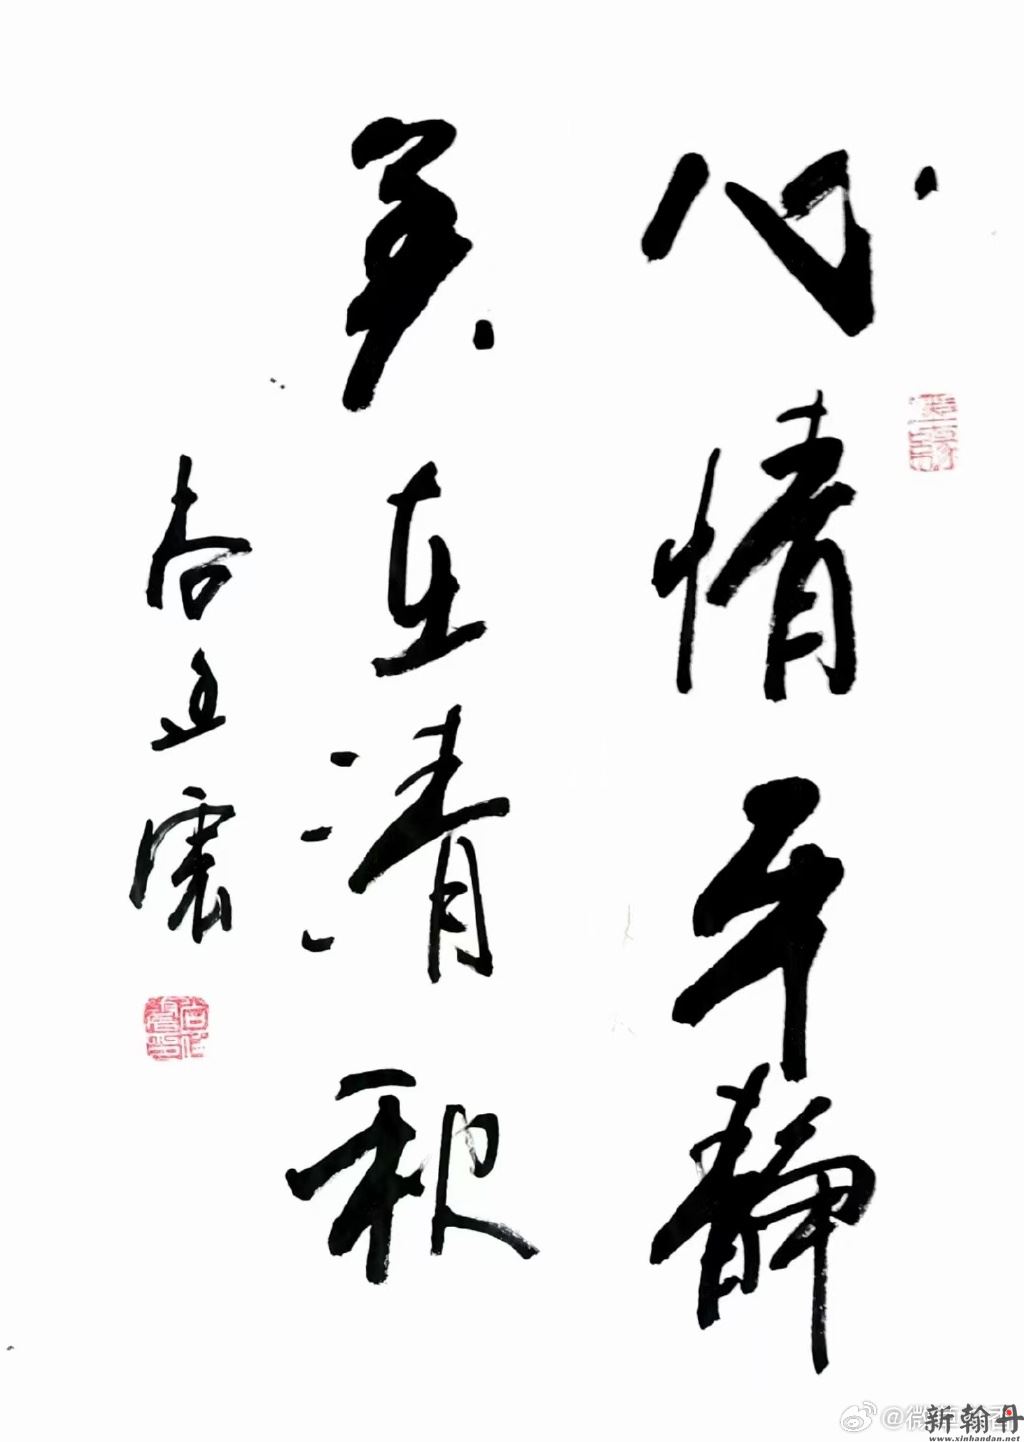 心情平静
美在清秋
新翰丹
www.xinhandan.net